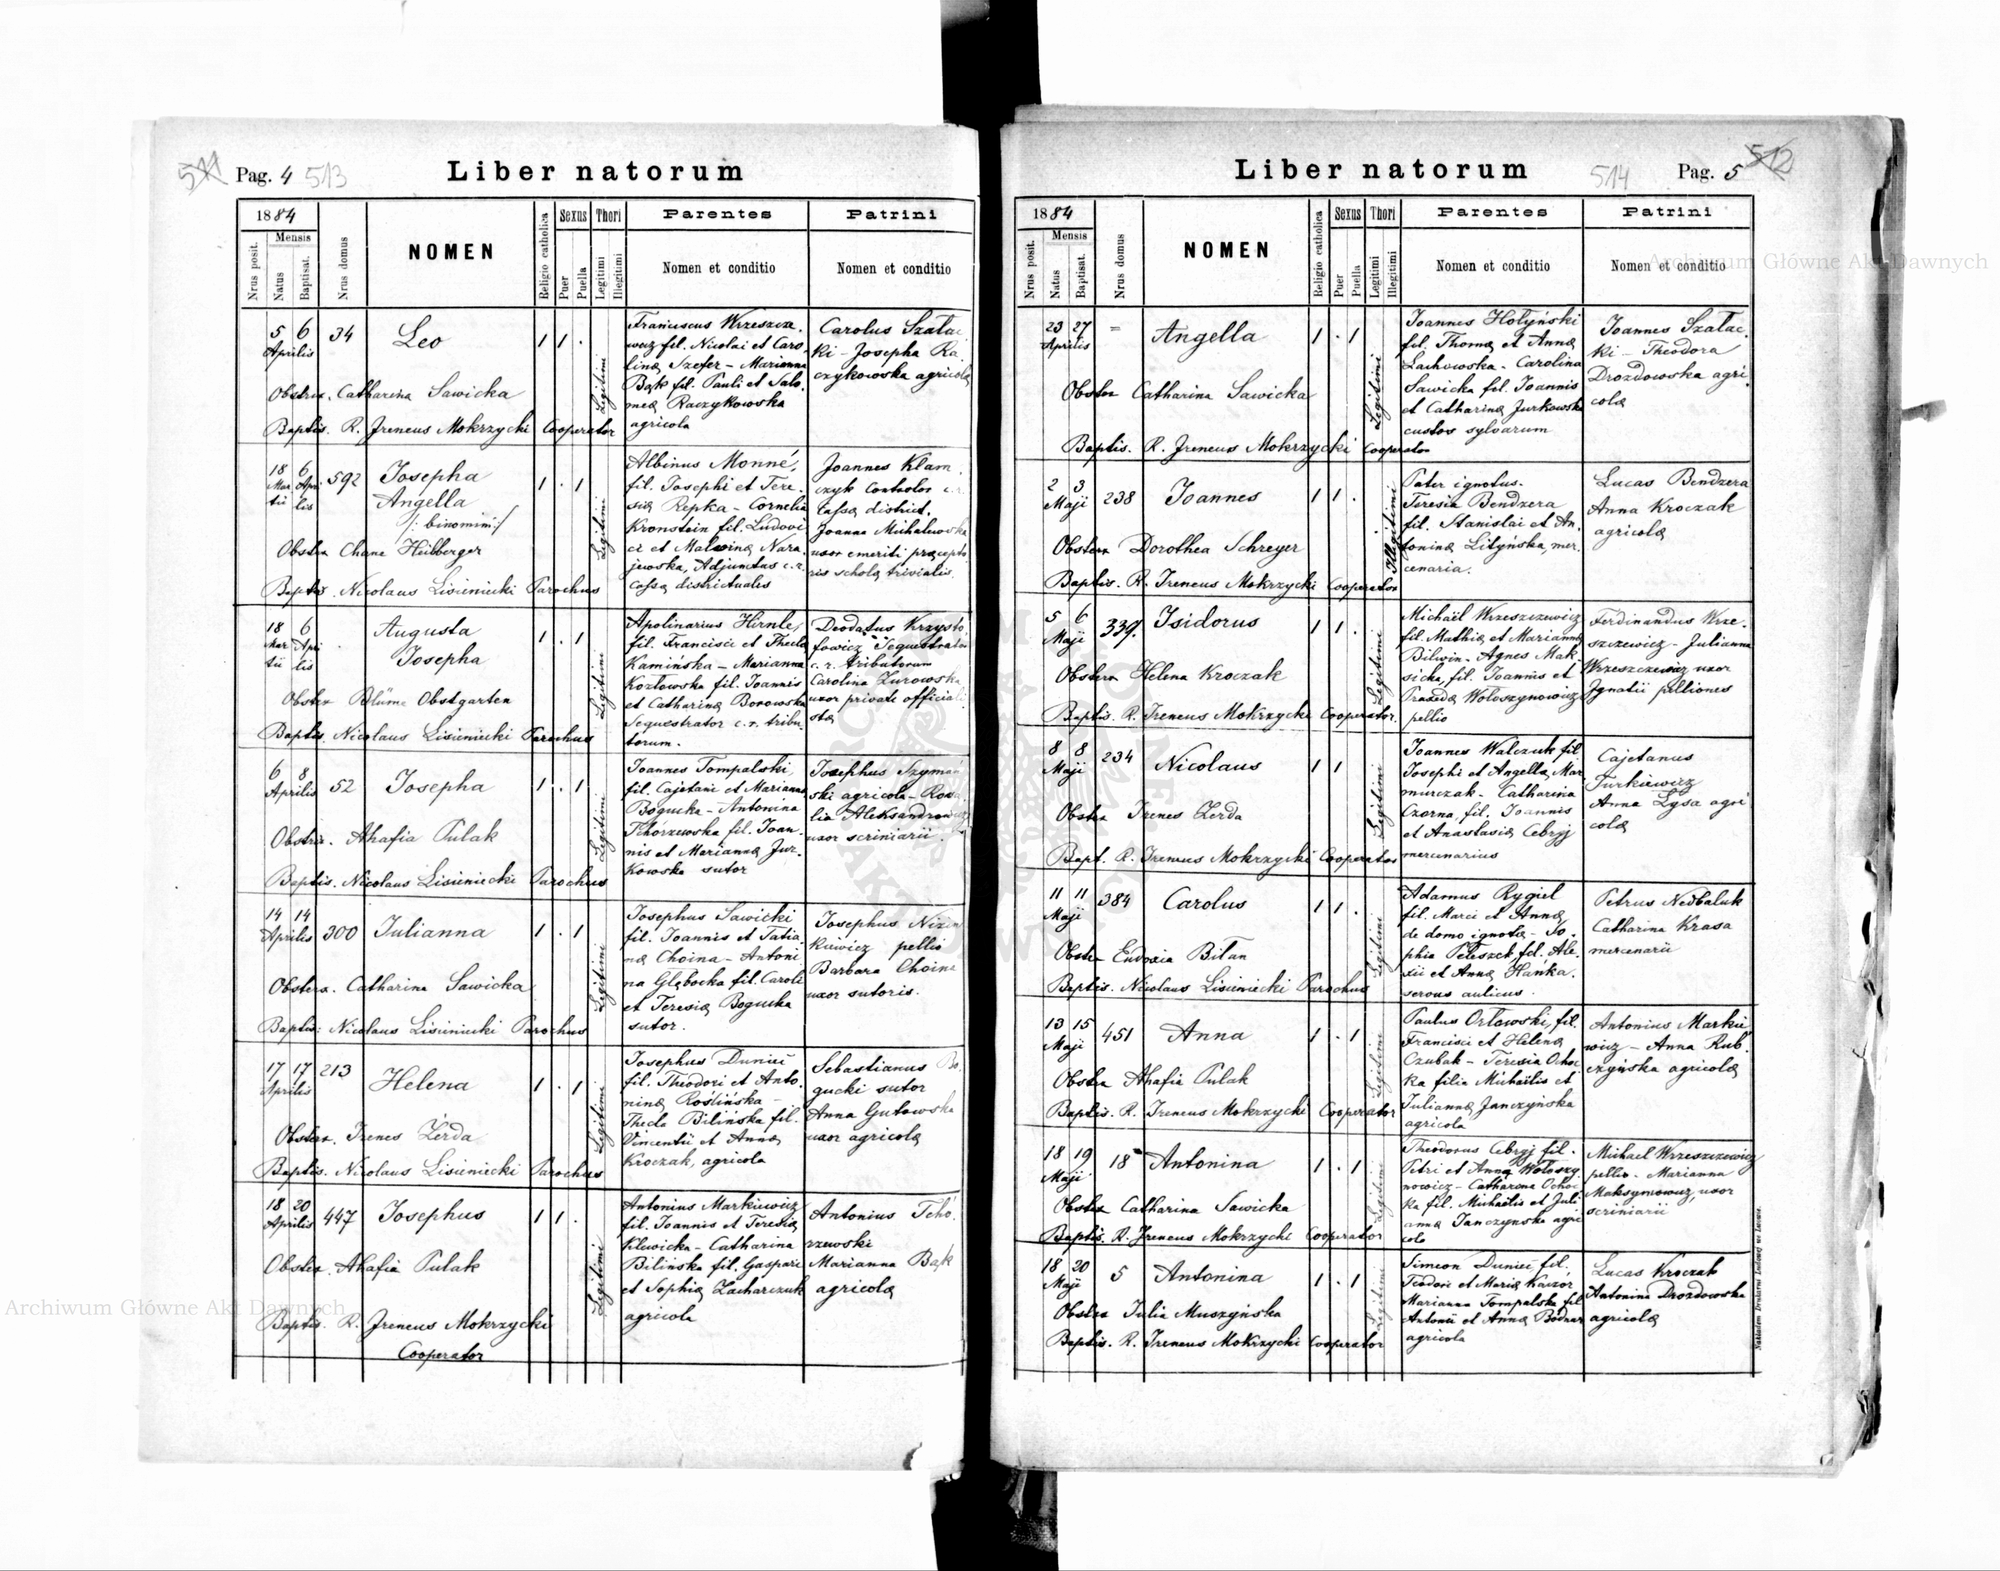 511 Pag. 4 513 Liber natorum
1884
Nrus posit.
Mensis
Natus
Baptisat.
Nrus domus
NOMEN
Religio catholica
Sexus
Puer
Puella
Thori
Legitimi
Illegitimi
Parentes
Nomen et conditio
Patrini
Nomen et conditio
5 6 Aprilis
34
Leo
1 1 .
Legitimi
Obstrx. Catharina Sawicka
Baptis. R. Jreneus Mokrzycki Cooperator
Franciscus Wrzeszcze-
wicz fil. Nicolai et Caro-
linæ Szefer – Marianna
Bąk fil. Pauli et Salo-
meæ Raczykowska
agricola
Carolus Szałac
ki – Josepha Ra
czykowska agricolæ
18 6
Mar Apri
tii lis
592
Josepha
Angella
/: binomin :/
1 . 1
Legitimi
Obstrx Chane Heilberger
Baptis. Nicolaus Lisieniecki Parochus
Albinus Monné,
fil. Josephi et Tere-
siæ Repka – Cornelia
Kronstein fil. Ludovi
ci et Malvinæ Nara-
jewska, Adjunctus c. r.
Cassæ districtualis
Joannes Klam
czyk Controlor c. r.
Cassæ district.
Joanna Michalewska
uxor emeriti præcepto
ris scholæ trivialis.
18 6
Mar Apri
tii lis
Augusta
Josepha
1 . 1
Legitimi
Obstrx Blüme Obstgarten
Baptis. Nicolaus Lisieniecki Parochus
Apolinarius Hirnle,
fil. Francisci et Thecla
Kamińska – Marianna
Kozłowska fil. Joannis
et Catharinæ Borowska
Sequestrator c. r. tribu-
torum.
Deodatus Krzysto
fowicz Sequestrator
c. r. tributorum
Carolina Zurowska
uxor private official
stæ
6 8
Aprilis
52
Josepha
1 . 1
Legitimi
Obstrix. Ahafia Pulak
Baptis. Nicolaus Lisieniecki Parochus
Joannes Tompalski,
fil. Cajetani et Mariannæ
Bogucka – Antonina
Tchorzewska fil. Joan-
nis et Mariannæ Jur-
kowska sutor
Josephus Szymań
ski agricola – Rosa
lia Aleksandrowicz
uxor scriniarii.
14 14
Aprilis
300
Julianna
1 . 1
Legitimi
Obsterx. Catharina Sawicka
Baptis: Nicolaus Lisieniecki Parochus
Josephus Sawicki
fil. Joannis et Tatia-
næ Choina – Antoni
na Głębocka fil. Caroli
et Teresiæ Bogucka
sutor.
Josephus Nizin
kiewicz pellio
Barbara Choina
uxor sutoris.
17 17
Aprilis
213
Helena
1 . 1
Legitimi
Obsterx. Irenes Żerda
Baptis. Nicolaus Lisieniecki Parochus
Josephus Duniec
fil. Theodori et Anto-
ninæ Roślińska –
Thecla Bilińska fil.
Vincentii et Annæ
Kroczak, agricola
Sebastianus Bo-
gucki sutor
Anna Gutowska
uxor agricolæ
18 20
Aprilis
447
Josephus
1 1 .
Legitimi
Obsterx. Ahafia Pulak
Baptis. R. Jreneus Mokrzycki
Cooperator
Antonius Markiewicz
fil. Joannis et Teresiæ
Klewicka – Catharina
Bilińska fil. Gaspari
et Sophiæ Zacharczuk
agricola
Antonius Tcho-
rzewski
Marianna Bąk
agricolæ
Liber natorum 514 Pag. 5 512
1884
Nrus posit.
Mensis
Natus
Baptisat.
Nrus domus
NOMEN
Religio catholica
Sexus
Puer
Puella
Thori
Legitimi
Illegitimi
Parentes
Nomen et conditio
Patrini
Nomen et conditio
23 27
Aprilis
=
Angella
1 . 1
Legitimi
Obster Catharina Sawicka
Baptis. R. Jreneus Mokrzycki Cooperator
Joannes Hołyński
fil. Thomæ et Annæ
Lachowska – Carolina
Sawicka fil. Joannis
et Catharinæ Jurkowska
custos sylvarum
Joannes Szałac
ki – Theodora
Drozdowska agri-
colæ
2 3
Maji
238
Joannes
1 1 .
Illegitimi
Obsterx Dorothea Schreyer
Baptis. R. Jreneus Mokrzycki Cooperator
Pater ignotus.
Teresia Bendzera
fil. Stanislai et An-
toninæ Lityńska, mer-
cenaria.
Lucas Bendzera
Anna Kroczak
agricolæ
5 6
Maji
339.
Isidorus
1 1 .
Legitimi
Obsterx Helena Kroczak
Baptis. R. Jreneus Mokrzycki Cooperator.
Michaël Wrzeszczewicz
fil. Mathiæ et Mariannæ
Bilwin – Agnes Mak-
sicka, fil. Joannis et
Praxedæ Wołoszynowicz
pellio
Ferdinandus Wrze-
szczewicz – Julianna
Wrzeszczewicz uxor
Ignatii pelliones
8 8
Maji
234
Nicolaus
1 1
Legitimi
Obstrx Irenes Zerda
Bapt. R. Jreneus Mokrzycki Cooperator
Joannes Walczuk fil.
Josephi et Angellæ Mar
murczak – Catharina
Czorna, fil. Joannis
et Anastasiæ Cebryj
mercenarius
Cajetanus
Jurkiewicz
Anna Lysa agri
colæ
11 11
Maji
384
Carolus
1 1 .
Legitimi
Obster Eudoxia Bilan
Baptis. Nicolaus Lisieniecki Parochus
Adamus Rygiel
fil. Marci et Annæ
de domo ignotæ – So-
phia Peleszek fil. Ale-
xii et Annæ Hańka.
servus aulicus.
Petrus Nedbaluk
Catharina Krasa
mercenarii
13 15
Maji
451
Anna
1 . 1
Legitimi
Obstrx Ahafia Pulak
Baptis. R. Jreneus Mokrzycki Cooperator
Paulus Orłowski, fil.
Francisci et Helenæ
Czubak – Teresia Ochoc
ka filia Michaelis et
Juliannæ Janczyńska
agricola
Antonius Markie
wicz – Anna Rub-
czyńska agricolæ
18 19
Maji
18
Antonina
1 . 1
Legitimi
Obstrx Catharina Sawicka
Baptis. R. Jreneus Mokrzycki Cooperator
Theodorus Cebryj fil.
Petri et Annæ Wołoszy
nowicz – Catharina Ochoc
ka fil. Michaelis et Juli
annæ Janczynska agri
cola
Michael Wrzeszczewicz
pellio. Marianna
Maksymowicz, uxor
scriniarii
18 20
Maji
5
Antonina
1 . 1
Legitimi
Obstrx Julia Muszyńska
Baptis. R. Jreneus Mokrzycki Cooperator
Simeon Duniec, fil.
Teodori et Mariæ Kaczor
Marianna Tompalska fil.
Antonii et Annæ Bodnar
agricola
Lucas Kroczak
Antonina Drozdowska
agricolæ
Nakładem Drukarni Ludowej we Lwowie.
Archiwum Główne Akt Dawnych
Archiwum Główne Akt Dawnych